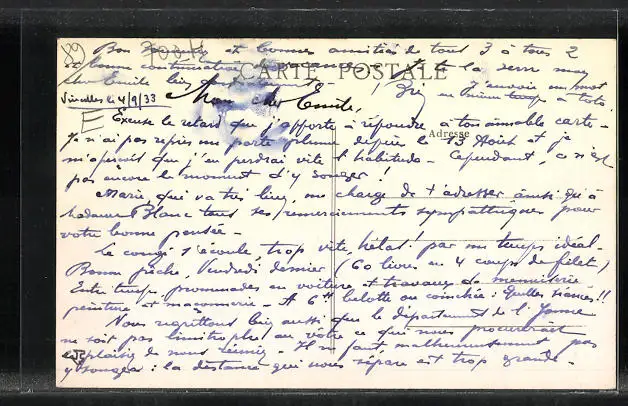 Bon et bonnes amitiés de tout 3 à tous 2
et bonne continuation de vacances
Cher Emile bien
J'envoie un mot
en même temps à Toto.
CARTE POSTALE
Vincelles le 4/9/33 Mon cher Emile,
Adresse
Excuse le retard que j'apporte à répondre à ton aimable carte -
Je n'ai pas repris ma porte plume depuis le 13 Août et je
m'aperçois que j'en perdrai vite l'habitude - Cependant, ce n'est
pas encore le moment d'y songer !
Marie, qui va très bien, me charge de t'adresser ainsi qu'à
Madame Blanc tous ses remerciements sympathiques pour
votre bonne pensée -
Le congé s'écoule, trop vite, hélas ! par un temps idéal -
Bonne pêche, Vendredi dernier (60 livres en 4 coups de filet)
Entre temps promenades en voiture et travaux de menuiserie
peinture et maçonnerie - A 6h belotte ou coinchée : Quelles séances !!
Nous regrettons bien aussi que le département de l'Yonne
ne soit pas limitrophe au vôtre ce qui nous procurerait
le plaisir de nous réunir - Il ne faut malheureusement pas
y songer : la distance qui nous sépare est trop grande -